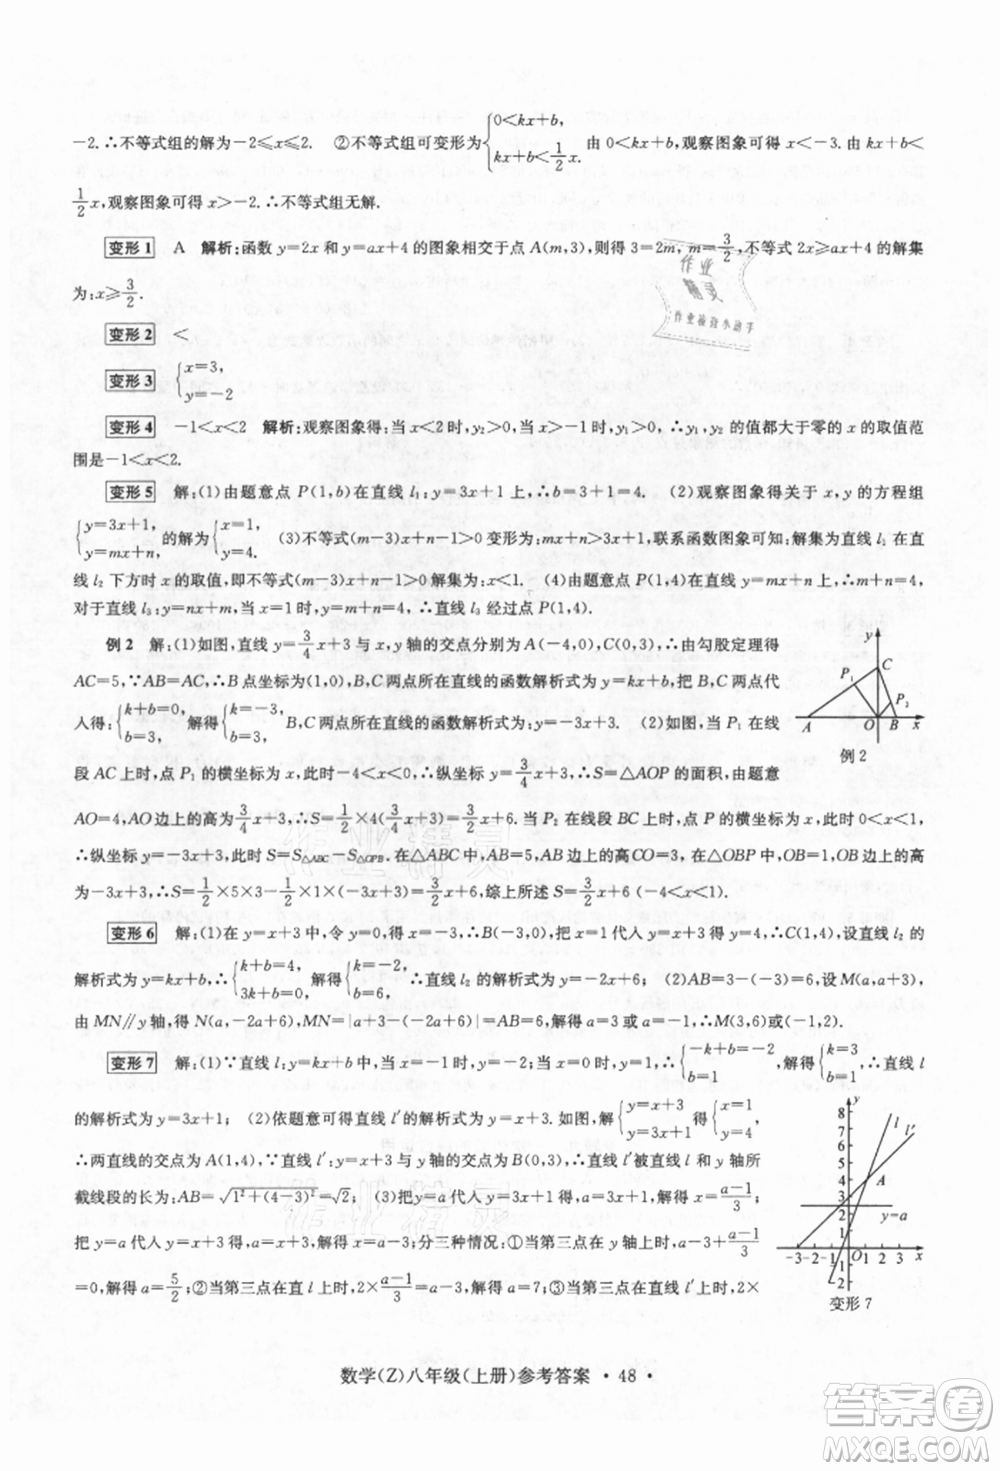 -2.∴不等式组的解为-2≤x≤2.  ②不等式组可变形为{0<kx+b, kx+b<1/2x.  由 0<kx+b,观察图象可得 x<-3.由 kx+b<
1/2x,观察图象可得 x>-2.∴不等式组无解.
变形 1  A  解析:函数 y=2x 和 y=ax+4 的图象相交于点 A(m,3),则得 3=2m, m=3/2,不等式 2x≥ax+4 的解集
为:x≥3/2.
变形 2  <
变形 3  {x=3, y=-2
变形 4  -1<x<2  解析:观察图象得:当 x<2 时,y₂>0,当 x>-1 时,y₁>0,∴使 y₁,y₂ 的值都大于零的 x 的取值范
围是-1<x<2.
变形 5  解:(1)由题意点 P(1,b)在直线 l₁:y=3x+1 上,∴b=4.  (2)观察图象得关于 x,y 的方程组
{y=3x+1, y=mx+n 的解为{x=1, y=4.  (3)不等式(m-3)x+n-1>0 变形为 mx+n>3x+1,联系函数图象可知:直线 l₁ 在直
线 l₂ 下方时 x 的取值,即不等式(m-3)x+n-1>0 解集为:x<1.  (4)由题意点 P(1,4)在直线 l₂ 上,∴m+n=4,
对于直线 l₃:y=nx+m,当 x=1 时,y=m+n=4,∴l₃ 经过点 P(1,4).
例 2  解:(1)如图,直线 y=3/4x+3 与 x,y 轴的交点分别为 A(-4,0),C(0,3),∴由勾股定理得
AC=5,∵AB=AC,∴点 B 坐标为(1,0),B,C 两点所在直线的函数解析式为 y=kx+b,把 B,C 两点代
人得:{k+b=0, b=3; 解得{k=-3, b=3; B,C 两点所在直线的函数解析式为:y=-3x+3.  (2)如图,当 P₁ 在线
段 AC 上时,点 P₁ 的横坐标为 x,此时-4<x<0,∴纵坐标为 3/4x+3,∴S=△AOP 的面积,由题意
AO=4,AO 边上的高为 3/4x+3,∴S=1/2×4(3/4x+3)=3/2x+6.当 P₂ 在线段 BC 上时,点 P 的横坐标为 x,此时 0<x<1,
∴纵坐标为-3x+3,∴S=S△ABC-S△OPB.在△ABC 中,AB=5,AB 边上的高 CO=3,在△OBP 中,OB=1,高为-3x+3,
∴S=1/2×5×3-1/2×1×(-3x+3)=3/2x+6,综上所述 S=3/2x+6(-4<x<1).
变形 6  解:(1)在 y=x+3 中,令 y=0,得 x=-3,∴B(-3,0),把 x=1 代人 y=x+3 得 y=4,∴C(1,4),设直线 l₂ 的
解析式为 y=kx+b,∴{k+b=4, 3k+b=0, 解得{k=-2, b=6, ∴直线 l₂ 的解析式为 y=-2x+6;  (2)AB=3-(-3)=6,设 M(a,a+3),
由 MN∥y 轴,得 N(a,-2a+6), MN=|a+3-(-2a+6)|=AB=6,解得 a=3 或 a=-1,∴M(3,6)或(-1,2).
变形 7  解:(1)∵直线 l:y=kx+b 中,当 x=-1 时,y=-2;当 x=0 时,y=1,∴{-k+b=-2, b=1, 解得{k=3, b=1; ∴直线 l
的解析式为 y=3x+1;  (2)依题意可得直线 l′的解析式为 y=x+3.如图,解{y=x+3, y=3x+1 得{x=1, y=4.
∴两直线的交点为 A(1,4),∵直线 l′:y=x+3 与 y 轴的交点为 B(0,3),∴直线 l′被直线 l 和 y 轴所
截线段的长为:AB=√1²+(4-3)²=√2;  (3)把 y=a 代人 y=3x+1 得,a=3x+1,解得 x=(a-1)/3;
把 y=a 代人 y=x+3 得,a=x+3,解得 x=a-3;分三种情况:①当第三点在 y 轴上时,a-3+(a-1)/3
=0,解得 a=5/2;②当第三点在直 l 上时,2×(a-1)/3=a-3,解得 a=7;③当第三点在直线 l′上时,2×
y
C
P₁
P₂
A
O
B
x
例 2
y
8
7
6
5
4
3
2
1
l
l′
A
y=a
-3
-2
-1
O
1
2
3
x
-1
-2
变形 7
数学(Z)八年级(上册)参考答案 · 48 ·
作业
精灵
作业检查小助手
作业精灵
作业精灵
答案圈
MXQE.COM